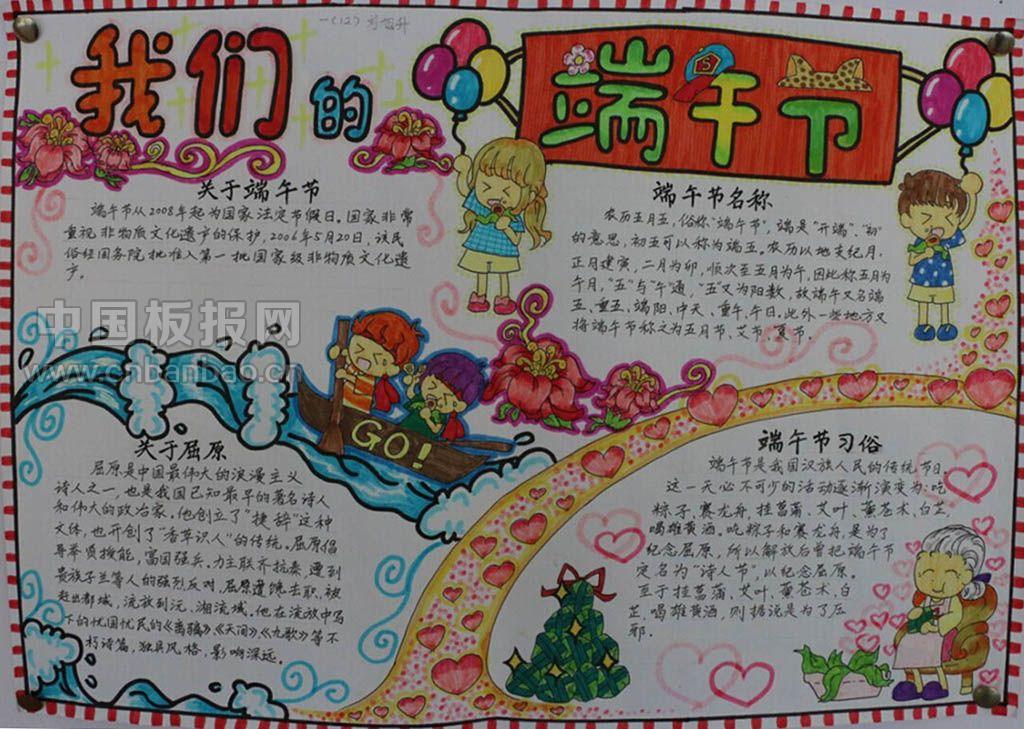 一(12)
我们的
端午节
S
关于端午节
端午节从2008年起为国家法定节假日。国家非常
重视非物质文化遗产的保护,2006年5月20日,该民
俗经国务院批准入第一批国家级非物质文化遗
产。
端午节名称
农历五月五,俗称"端午节",端是"开端"、"初"
的意思,初五可以称为端五。农历以地支纪月,
正月建寅,二月为卯,顺次至五月为午,因此称五月为
午月,"五"与"午"通,"五"又为阳数,故端午又名端
五、重五、端阳、中天、重午、午日。此外一些地方又
将端午节称之为五月节、艾节、夏节。
中国板报网
www.cnbanbao.cn
GO!
关于屈原
屈原是中国最伟大的浪漫主义
诗人之一,也是我国已知最早的著名诗人
和伟大的政治家。他创立了"楚辞"这种
文体,也开创了"香草识人"的传统。屈原倡
导举贤授能,富国强兵,力主联齐抗秦,遭到
贵族子兰等人的强烈反对,屈原遭馋去职,被
赶出都城,流放到沅、湘流域。他在流放中写
下的忧国忧民的《离骚》《天问》《九歌》等不
朽诗篇,独具风格,影响深远。
端午节习俗
端午节是我国汉族人民的传统节日。
这一天必不可少的活动逐渐演变为:吃
粽子、赛龙舟、挂菖蒲、艾叶、黄苍术、白芷、
喝雄黄酒。吃粽子和赛龙舟,是为了
纪念屈原,所以解放后曾把端午节
定名为"诗人节",以纪念屈原。
至于挂菖蒲、艾叶、黄苍术、白
芷,喝雄黄酒,则据说是为了压
邪。